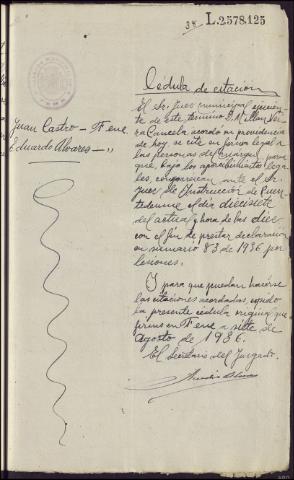 34 L.2578.125
Cédula de citación
Juan Castro - Fene
Eduardo Alvares - "
El Sr. Juez municipal ejercien-
te de este termino D. Millan Vei-
ra Cancela acordó en providencia
de hoy, se cite en forma legal a
las personas del margen, para
que, bajo los apercibimientos lega-
les, comparezcan ante el Sr.
Juez de Instrucción de Puen-
tedeume el dia diecisiete
del actual y hora de las diez
con el fin de prestar declaración
en sumario 83 de 1936 por
lesiones.
Y para que puedan hacerse
las citaciones acordadas, expido
la presente cédula original que
firmo en Fene a siete de
Agosto de 1936.
El Secretario del Juzgado.